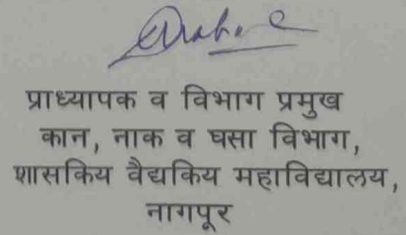 प्राध्यापक व विभाग प्रमुख
कान, नाक व घसा विभाग,
शासकिय वैद्यकिय महाविद्यालय,
नागपूर